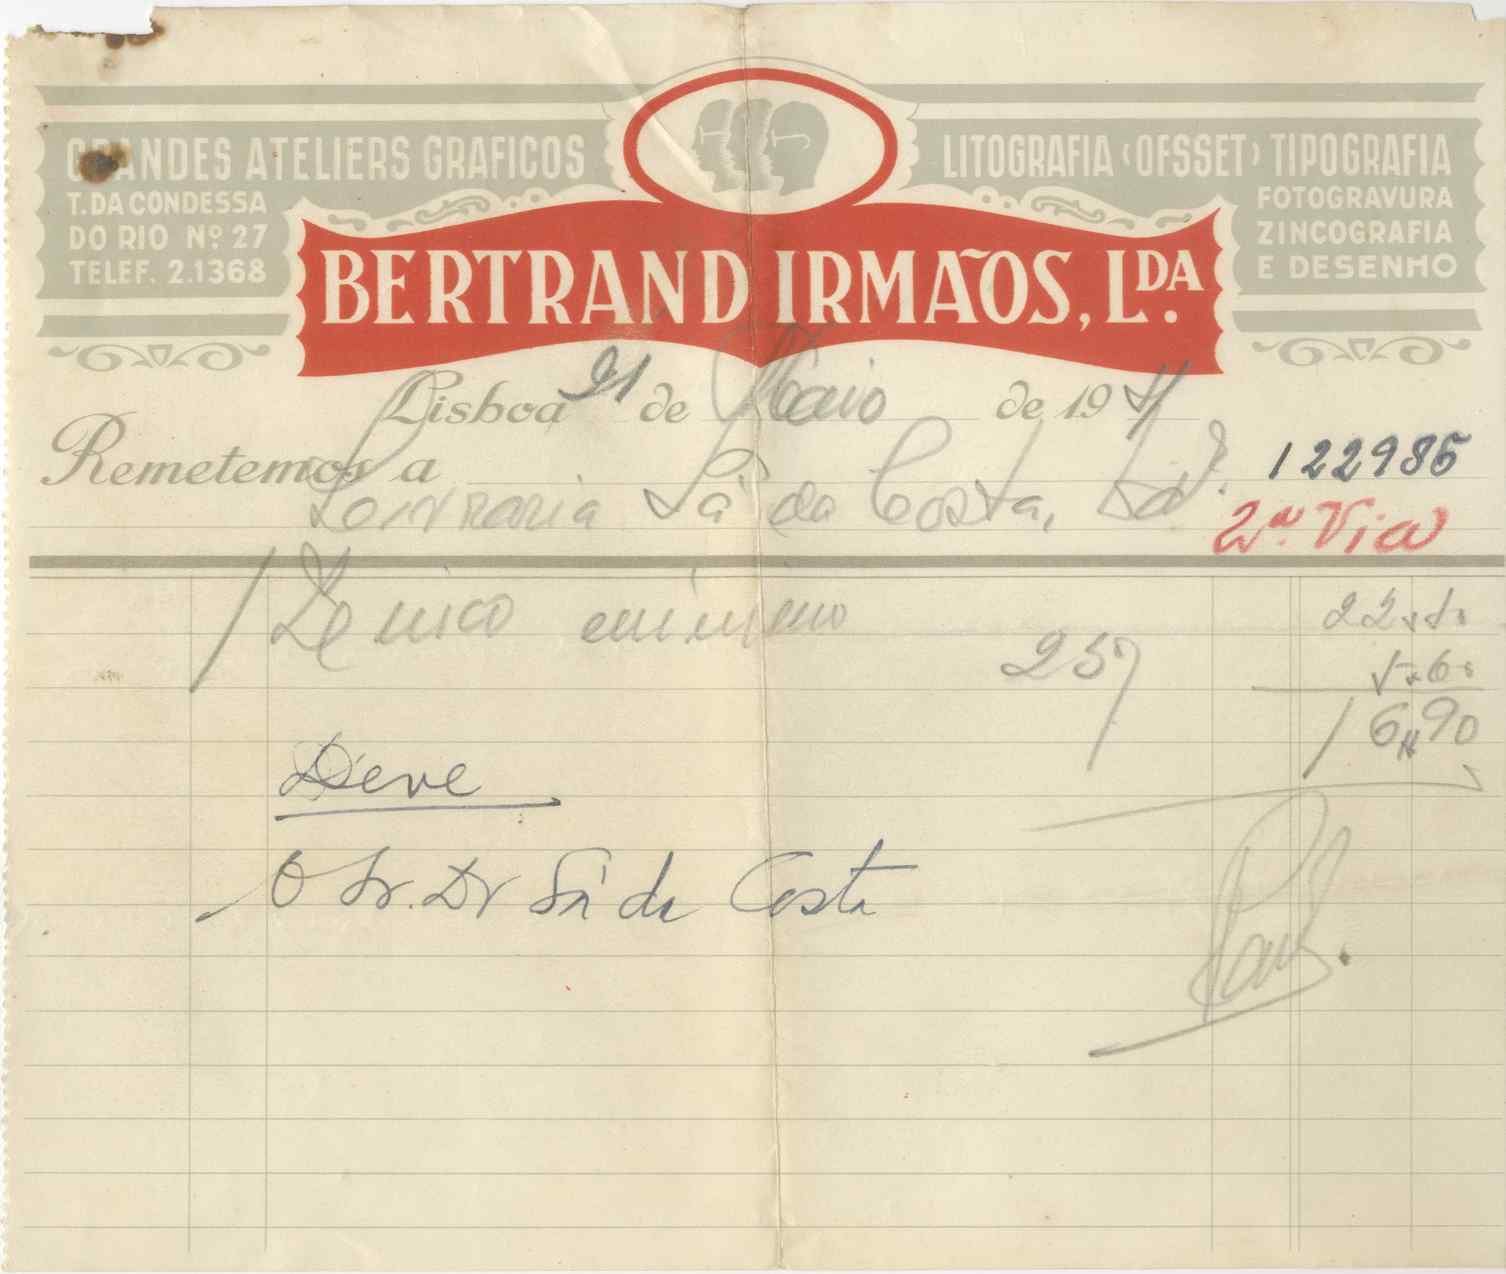 GRANDES ATELIERS GRAFICOS
T. DA CONDESSA
DO RIO Nº 27
TELEF. 2.1368
LITOGRAFIA (OFSSET) TIPOGRAFIA
FOTOGRAVURA
ZINCOGRAFIA
E DESENHO
BERTRAND IRMÃOS, LDA.
Lisboa 21 de Maio de 194
Remetemos a
Livraria Sá da Costa, Ld.
122986
2ª Via
1 Zinco minimo
25%
22,50
5,60
16,90
Deve
O Sr. Dr Sá da Costa